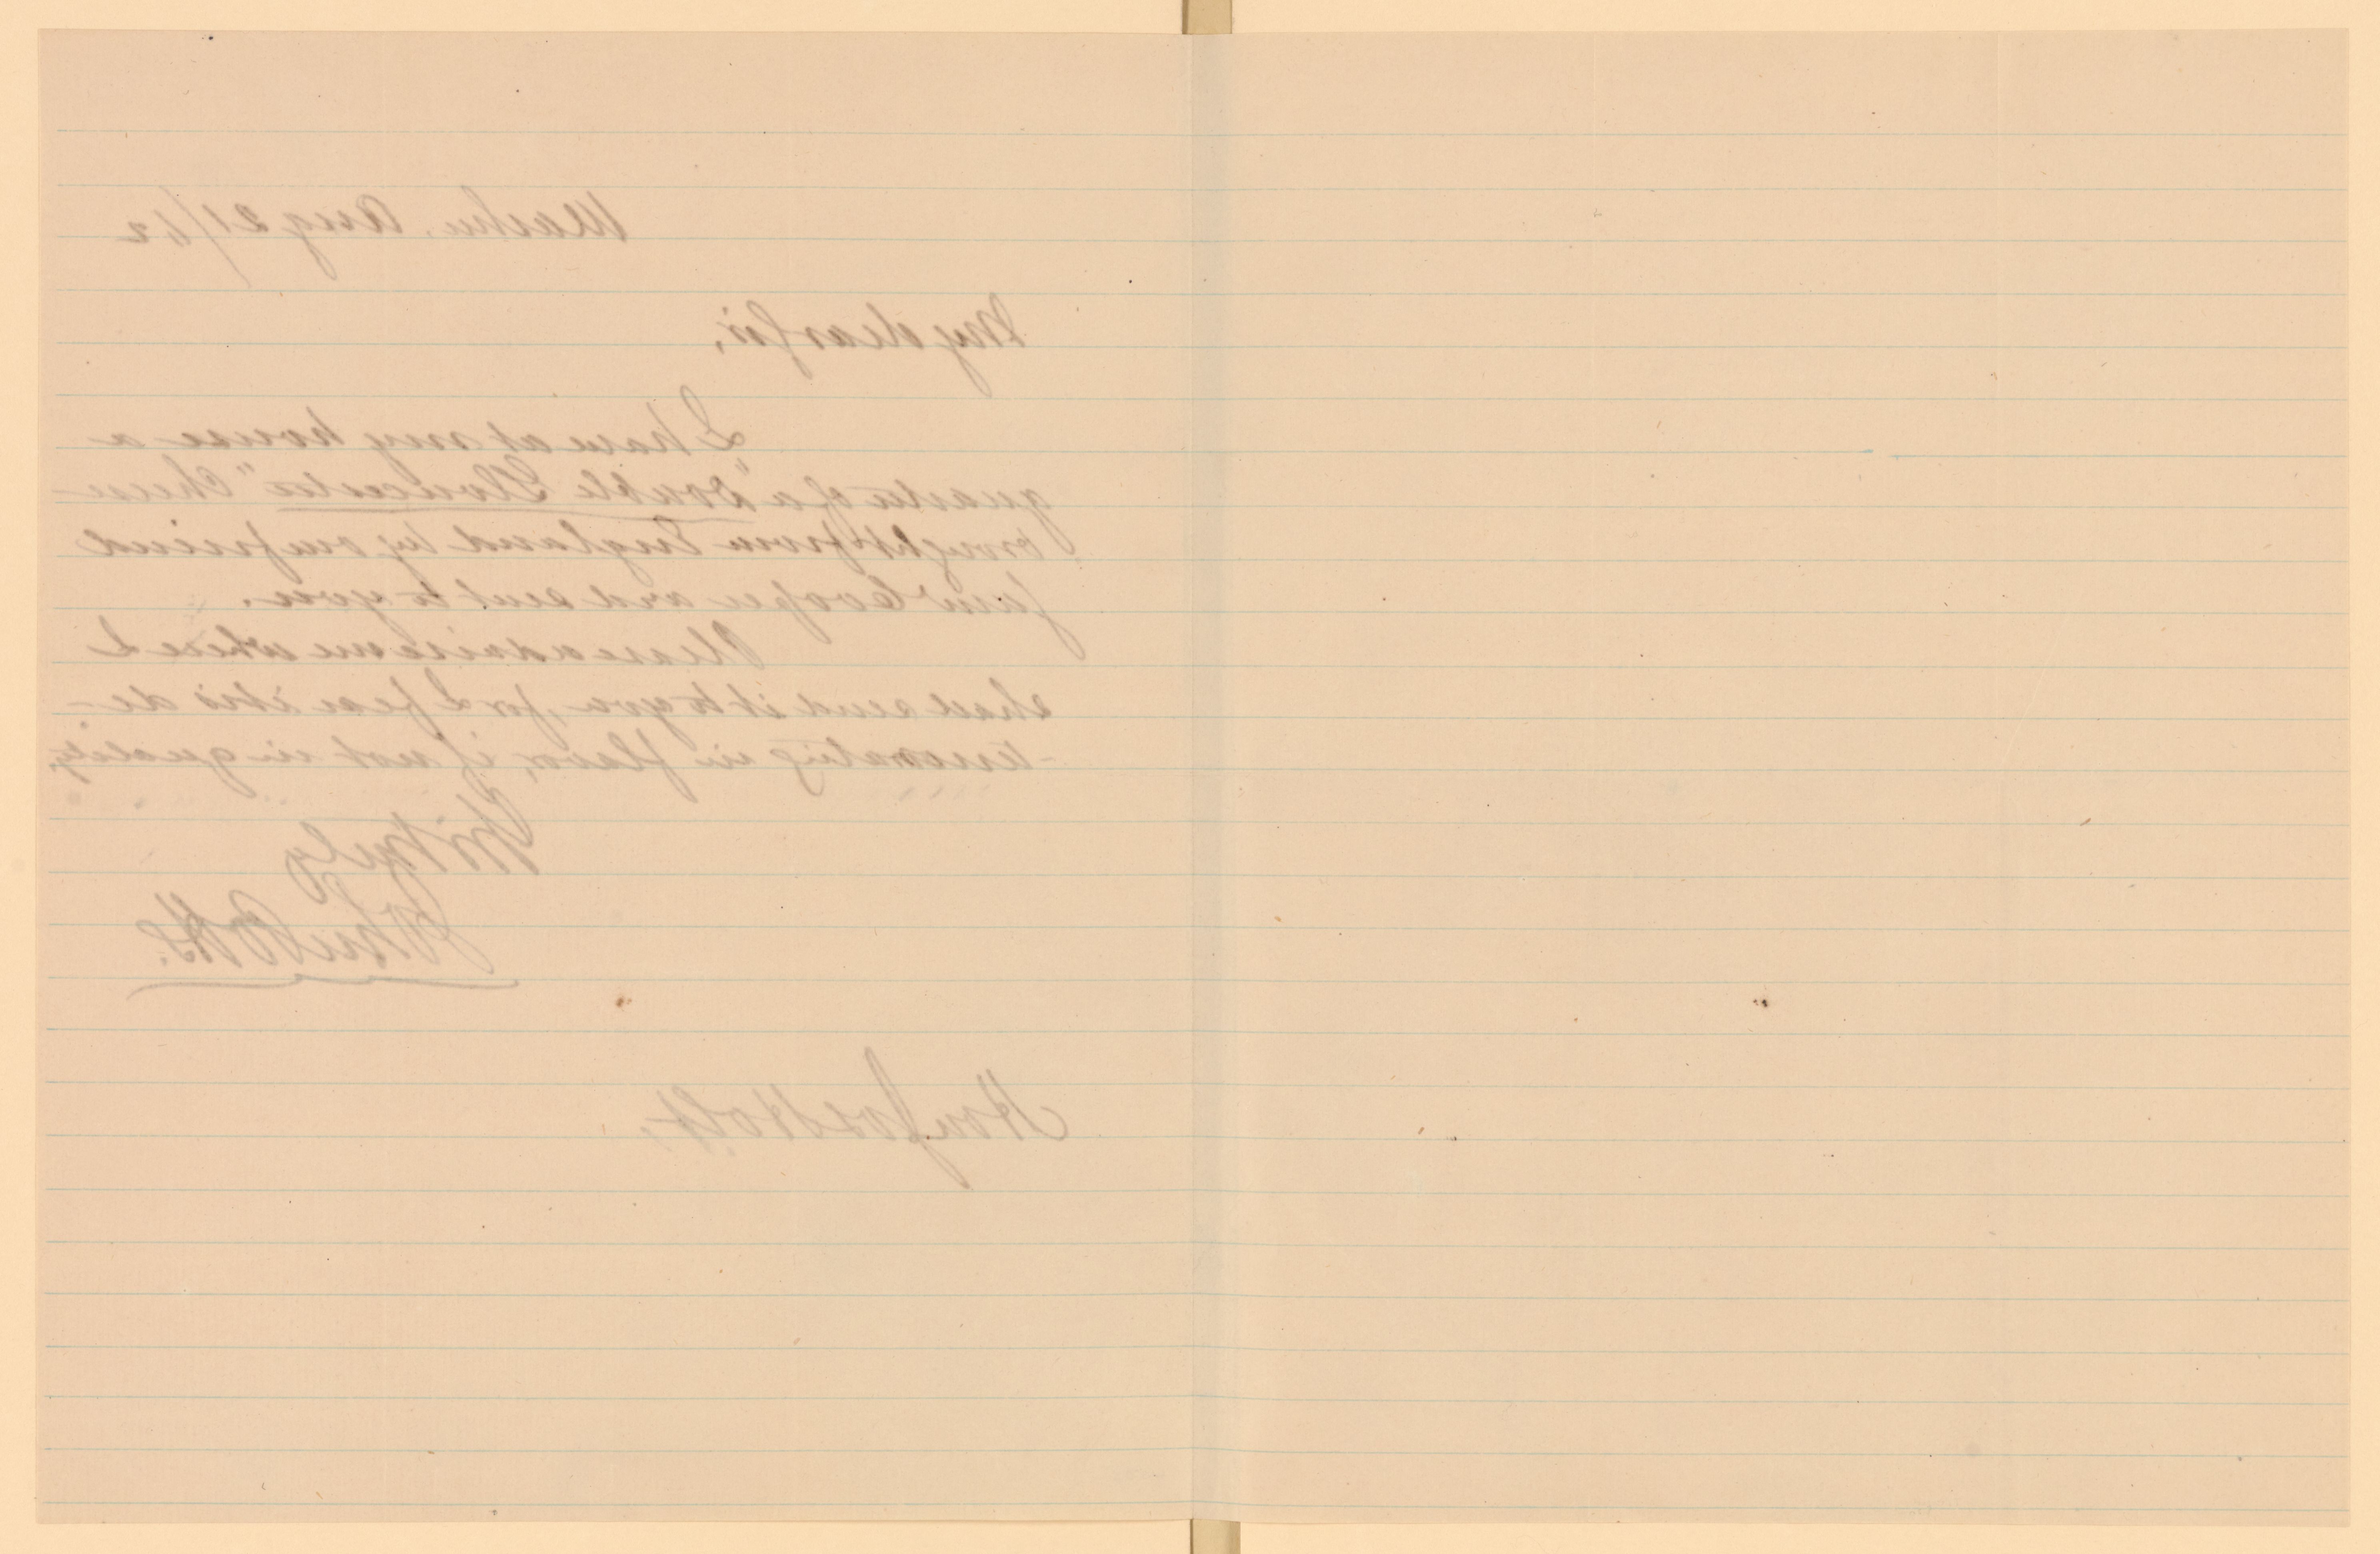 Washn. Aug 21/62
My dear sir,
I have at my house a
quarter of a "Double Gloucester" Cheese
brought from England by our friend
Cooper and sent to you.
Please advise me where I
shall send it to you, for I fear it is de-
-teriorating in flavor, if not in quality,
Yrs truly
John Potts.
Hon Jos Holt.